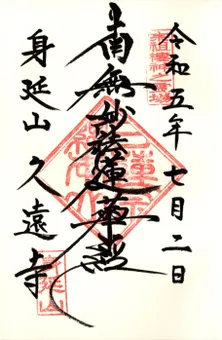 令和五年七月二日
南無妙法蓮華経
身延山久遠寺
身延山